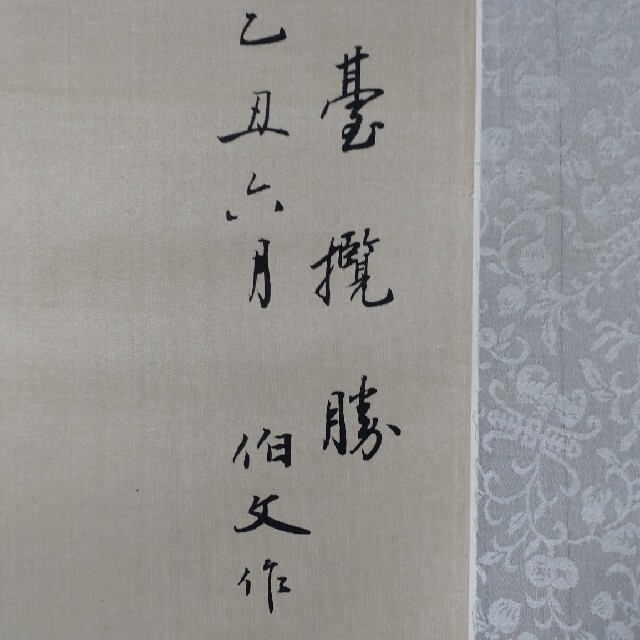 臺攬勝
乙丑六月 伯文作